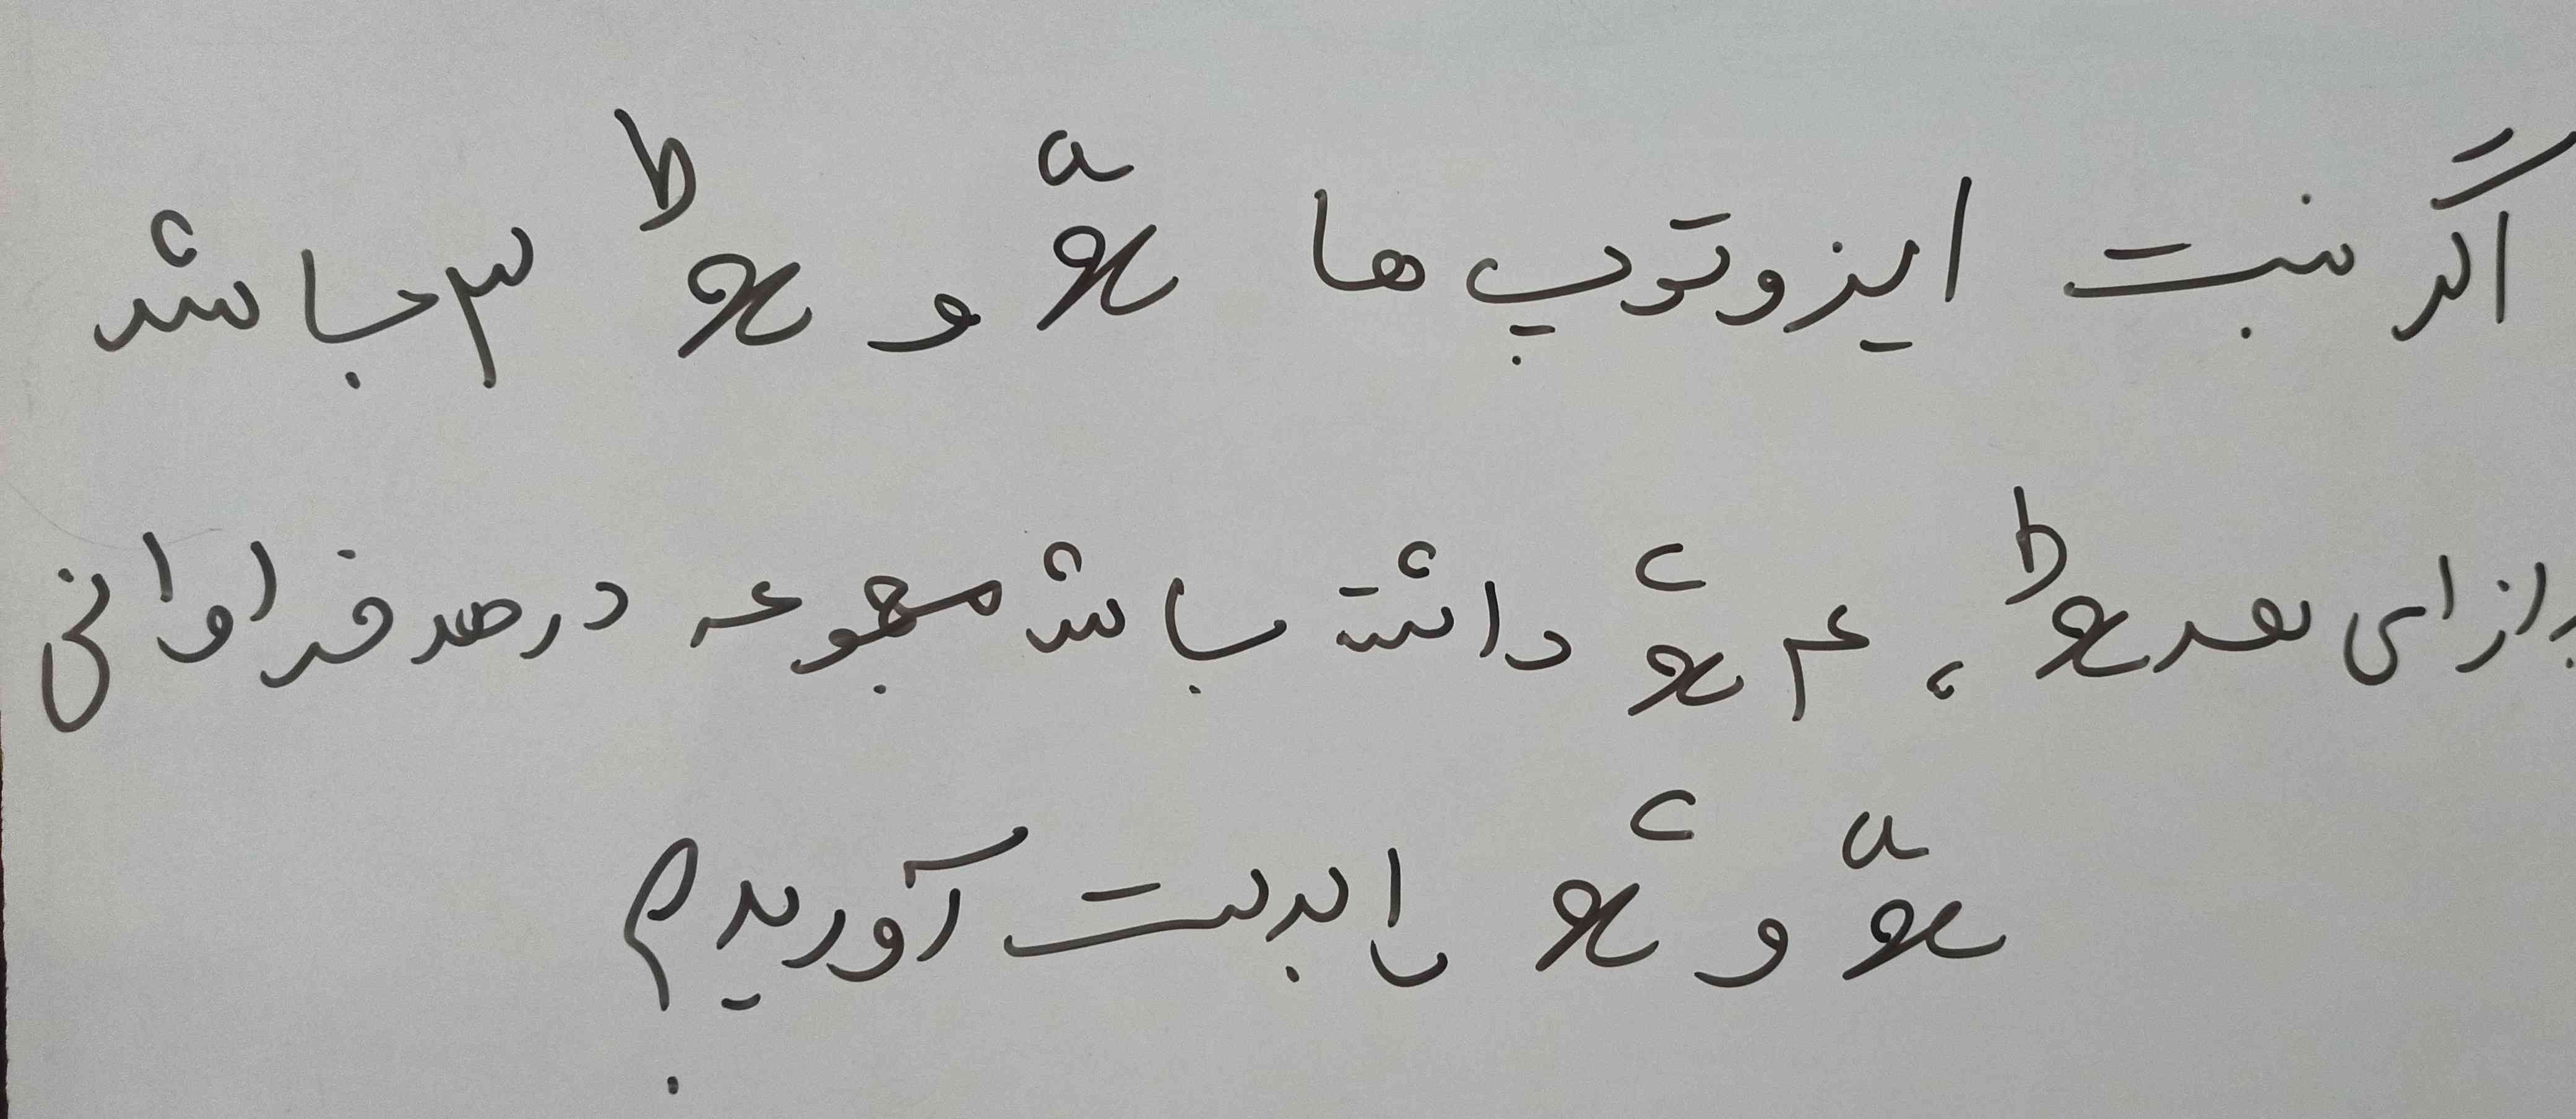 اگر نسبت ایزوتوپ ها ᵃx و ᵇx ۳ باشد
بازای هر ᵇx ، ۴ ᶜx داشته باشد مجموعه درصد فراوانی
ᵃx و ᶜx را بدست آورید؟